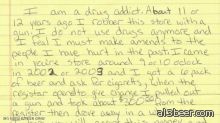 I am a drug addict. About 11 or
12 years ago I robber this store with a
gun. I do not use drugs anymore and
I feel I must make amends to the
people I have hurt in the past. I came
in you're store around 9 or 10 oclock
in 2002 or 2003 and I got a 6 pack
of beer and ask for cigarets. When the
register opend to give change I pulled out
a gun and took about $300.00 from the
register then drove away in a
al3beer.com